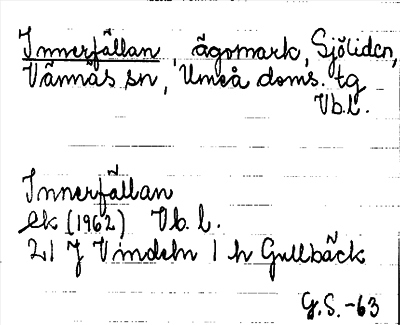 Innerfällan, ägomark, Sjöliden,
Vännäs sn, Umeå doms. tg
Vb.l.
Innerfällan
ek (1962) Vb. l.
21 J Vindeln 1 h Gullbäck
G.S. -63